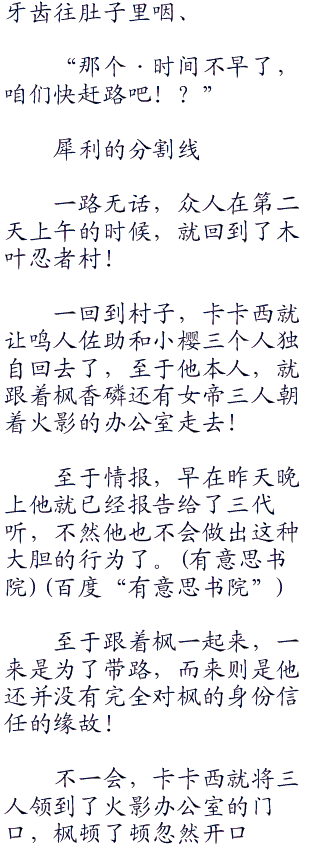 牙齿往肚子里咽、
“那个·时间不早了，
咱们快赶路吧！？”
犀利的分割线
一路无话，众人在第二
天上午的时候，就回到了木
叶忍者村！
一回到村子，卡卡西就
让鸣人佐助和小樱三个人独
自回去了，至于他本人，就
跟着枫香磷还有女帝三人朝
着火影的办公室走去！
至于情报，早在昨天晚
上他就已经报告给了三代
听，不然他也不会做出这种
大胆的行为了。(有意思书
院)(百度“有意思书院”)
至于跟着枫一起来，一
来是为了带路，而来则是他
还并没有完全对枫的身份信
任的缘故！
不一会，卡卡西就将三
人领到了火影办公室的门
口，枫顿了顿忽然开口